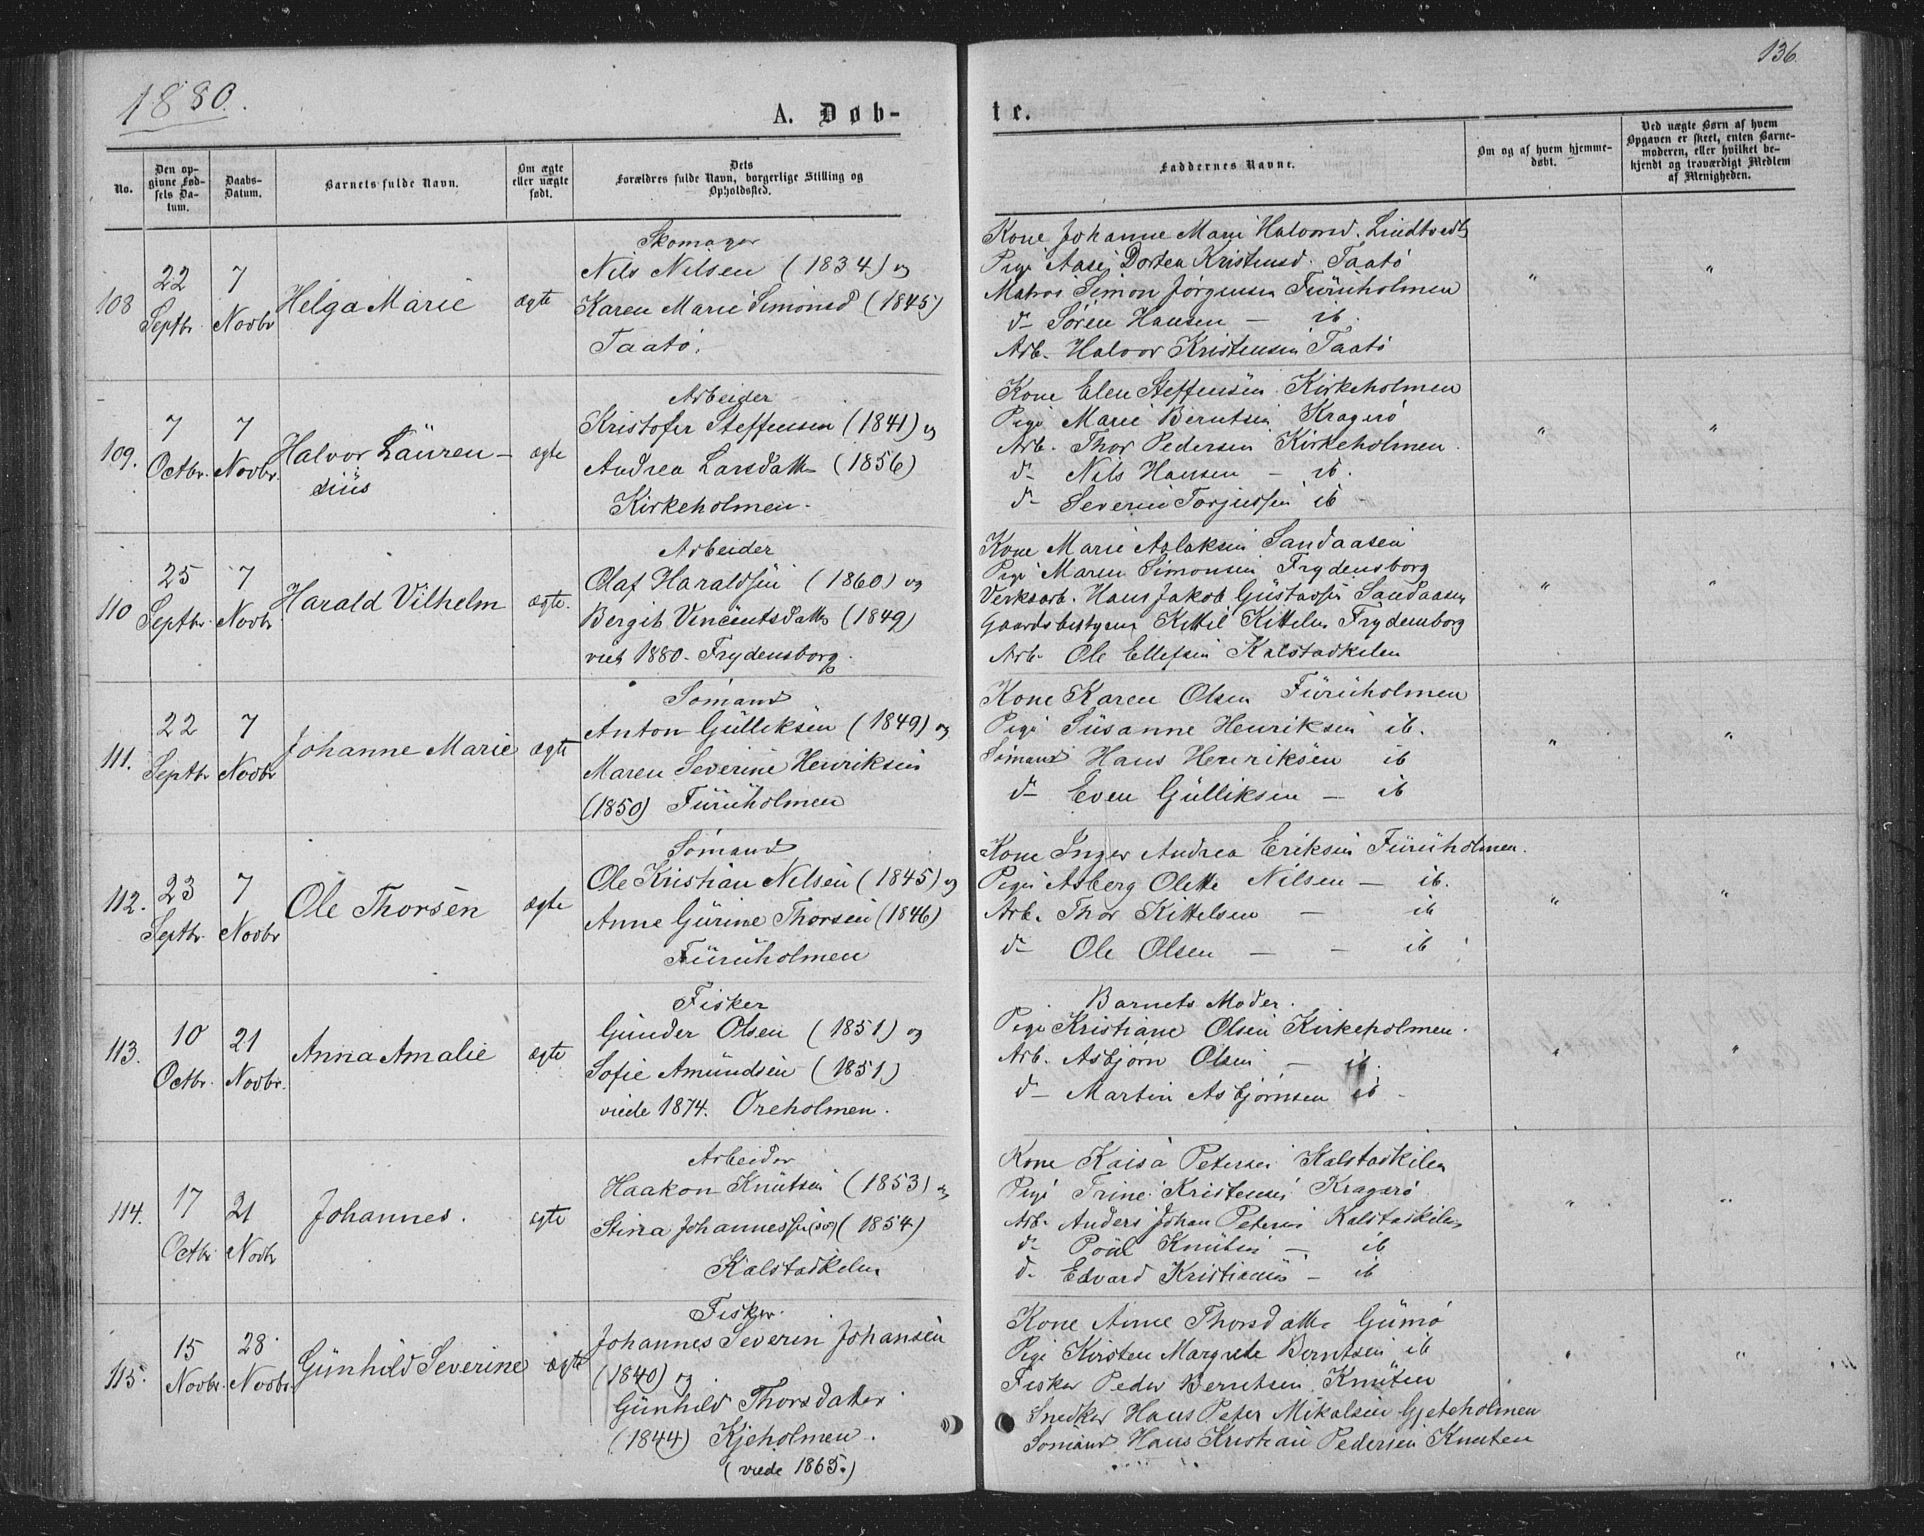 1880.
A. Døb-
No.
Den op-
givne Fød-
sels Da-
tum.
Daabs-
Datum.
Barnets fulde Navn.
Om ægte
eller uægte
født.
Dets
Forældres fulde Navn, borgerlige Stilling og
Opholdssted.
108
22
Septbr.
7
Novbr
Helga Marie
ægte
Skomager
Nils Nilsen (1834) og
Karen Marie Simonsd (1845)
Taatø.
109.
7
Octbr.
7
Novbr.
Halvor Lauren-
sius
ægte
Arbeider
Kristofer Steffensen (1841) og
Andrea Larsdatter (1856)
Kirkeholmen.
110
25
Septbr.
7
Novbr.
Harald Vilhelm
ægte.
Arbeider
Olaf Haraldsen (1860) og
Bergit Vincentsdatter (1849)
viet 1880. Frydensborg.
111.
22
Septbr
7
Novbr
Johanne Marie
ægte
Sømand
Anton Gulliksen (1849) og
Maren Severine Henriksen
(1850) Furuholmen
112.
23
Septbr.
7
Novbr
Ole Thorsen
ægte
Sømand
Ole Kristian Nilsen (1845) og
Anne Gurine Thorsen (1846)
Furuholmen
113.
10
Octbr.
21
Novbr.
Anna Amalie
ægte
Fisker
Gunder Olsen (1851) og
Sofie Amundsen (1851)
viede 1874. Øreholmen.
114.
17
Octbr
21
Novbr
Johannes.
ægte
Arbeider
Haakon Knutsen (1853) og
Stina Johannessen (1854)
Kalstadkilen
115.
15
Novbr.
28
Novbr.
Gunhild Severine
ægte
Fisker.
Johannes Severin Johansen
(1840) og
Gunhild Thorsdatter
(1844) Kjeholmen.
(viede 1865.)
136.
te.
Faddernes Navne.
Om og af hvem hjemme-
døbt.
Ved uægte Børn af hvem
Opgaven er skeet, enten Barne-
moderen, eller hvilket be-
kjendt og troværdigt Medlem
af Menigheden.
Kone Johanne Marie Halvorsd. Lindtvedt
Pige Aase Dorten Kristensd. Taatø
Matros Simon Jørgensen Furuholmen
d- Søren Hansen - ib.
Arb. Halvor Kristensen Taatø
" "
Kone Elen Steffensen Kirkeholmen
Pige Marie Berntsen Kragerø
Arb. Thor Pedersen Kirkeholmen.
d- Nils Hansen - ib.
d- Severin Torjussen ib
" "
Kone Marie Aslaksen Sandaasen
Pige Maren Simonsen Frydensborg
Verksarb. Hans Jakob Gustavsen Sandaasen
Gaardsbestyrer Kittil Kittelsen Frydensborg
Arb. Ole Ellefsen Kalstadkilen
" "
Kone Karen Olsen Furuholmen
Pige Susanne Henriksen ib.
Sømand Hans Henriksen ib
d- Even Gulliksen - ib
" "
Kone Inger Andrea Eriksen Furuholmen.
Pige Asberg Olette Nilsen - ib.
Arb. Thor Kittelsen - ib
d- Ole Olsen - - ib
" "
Barnets Moder.
Pige Kristiane Olsen Kirkeholmen.
Arb. Asbjørn Olsen - ib.
d- Martin Asbjørnsen ib.
" "
Kone Kaisa Petersen Kalstadkilen
Pige Trine Kristensen Kragerø
Arb. Anders Johan Petersen Kalstadkilen
d- Poul Knutsen - ib
d. Edvard Kristiansen - ib
" "
Kone Anne Thorsdatter Gumø
Pige Kirsten Margrete Berntsen ib
Fisker Peder Berntsen Knuten
Snedker Hans Peter Mikalsen Gjeteholmen
Sømand Hans Kristian Pedersen Knuten
" "